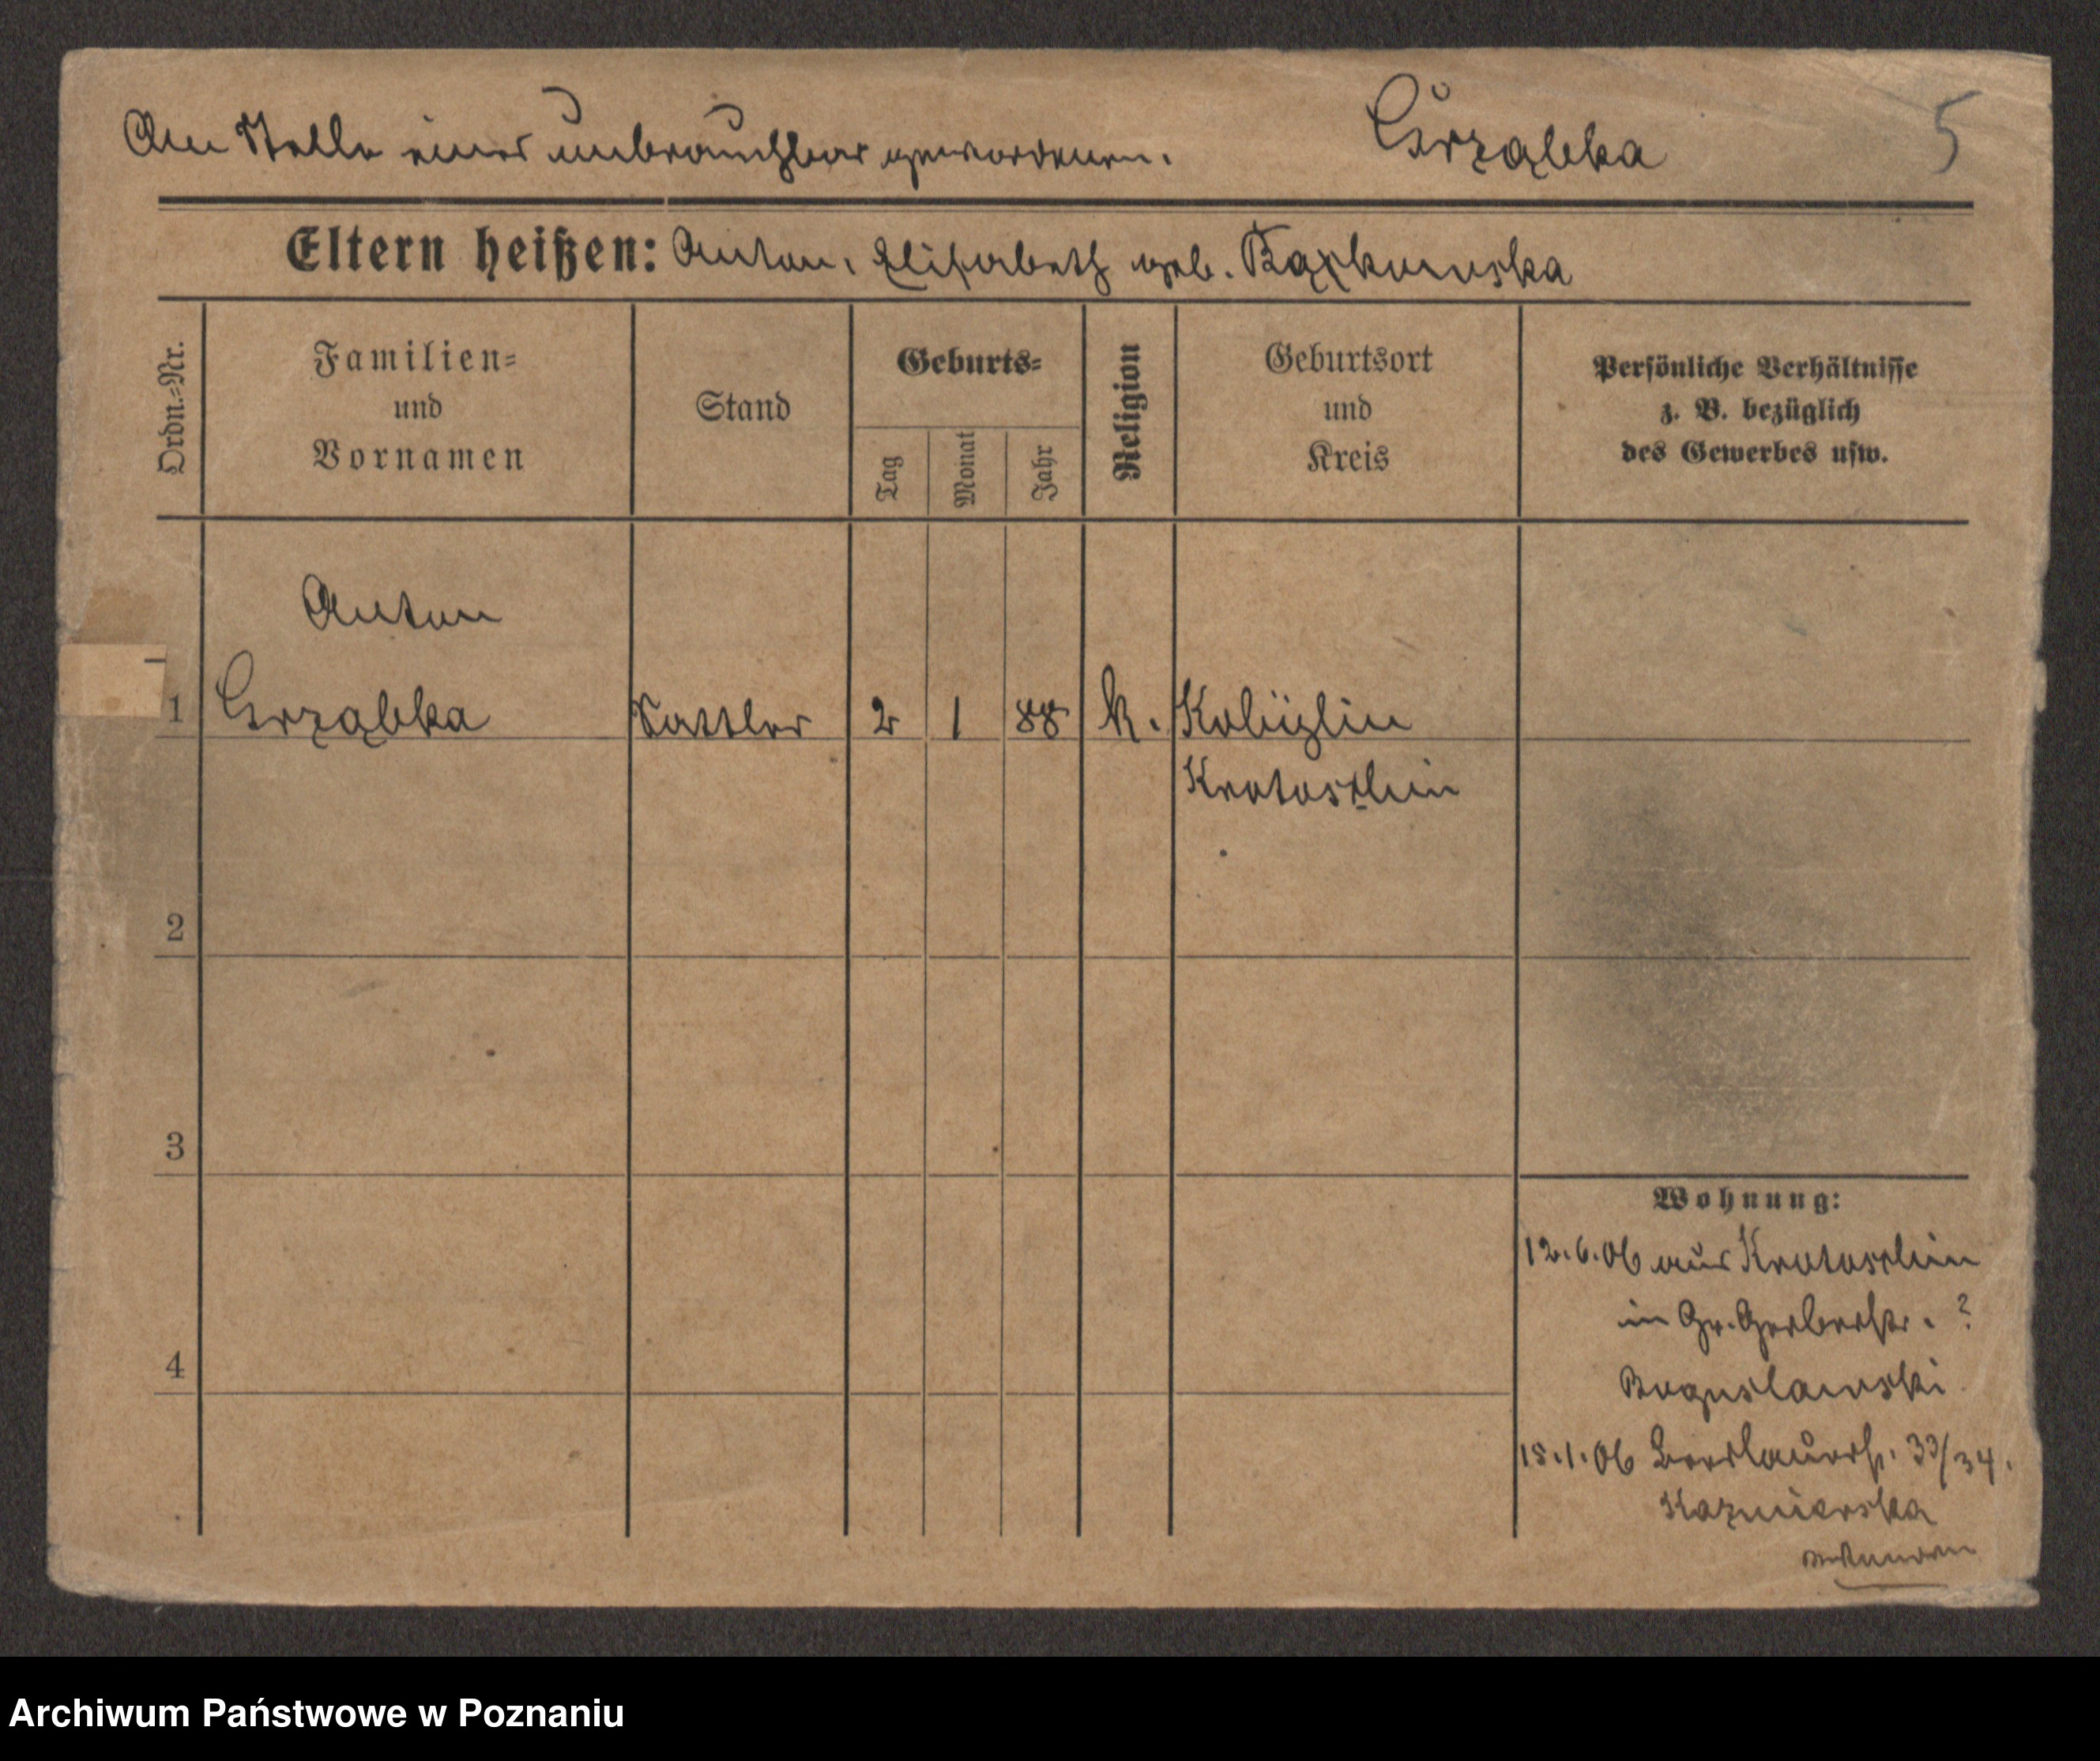 An Stelle einer unbrauchbar gewordenen. Grząbka 5
Eltern heißen: Anton, Elisabeth geb.
Ordn.=Nr.
Familien=
und
Vornamen
Stand
Geburts=
Tag Monat Jahr
Religion
Geburtsort
und
Kreis
Persönliche Verhältnisse
z. B. bezüglich
des Gewerbes usw.
Anton
1 Grząbka Sattler 2 1 88 k. Kobiglin
Krotoschin
2
3
4
Wohnung:
12.6.06 aus Krotoschin
in Gr. Gerberstr. ?
Boguslawski
15.1.06 Breslauerstr. 33/34.
Kazmierska
Archiwum Państwowe w Poznaniu